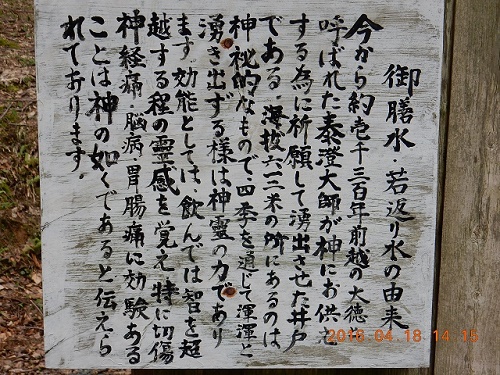 御膳水・若返り水の由来
今から約壱千三百年前越の大徳と
呼ばれた泰澄大師が神にお供え
する為に祈願して湧出させた井戸
である 海抜六一三米の所にあるのは
神秘的なもので、四季を通じて渾渾と
湧き出ずる様は神霊の力であり
ます 効能としては、飲んでは智を超
越する程の霊感を覚え 特に切傷
神経痛・脳病・胃腸痛に効験ある
ことは神の如くであると伝えら
れております。
2016.04.18 14:15